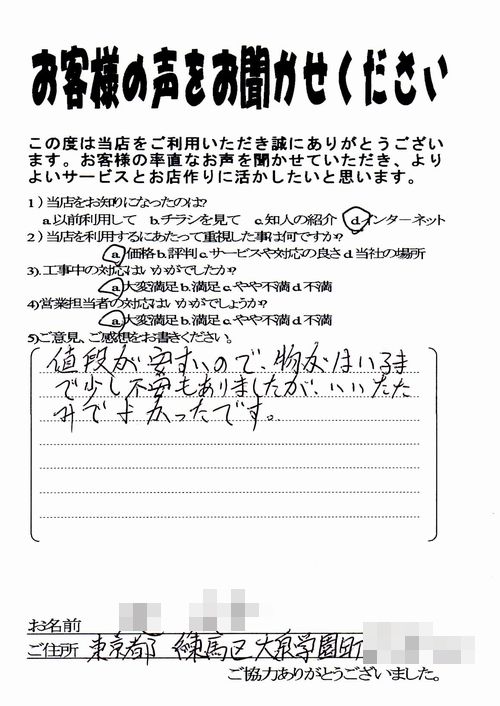 お客様の声をお聞かせください
この度は当店をご利用いただき誠にありがとうござい
ます。お客様の率直なお声を聞かせていただき、より
よいサービスとお店作りに活かしたいと思います。
1）当店をお知りになったのは?
a.以前利用して b.チラシを見て c.知人の紹介 d.インターネット
2）当店を利用するにあたって重視した事は何ですか?
a.価格 b.評判 c.サービスや対応の良さ d 当社の場所
3).工事中の対応はいかがでしたか?
a.大変満足 b.満足 c.やや不満 d 不満
4)営業担当者の対応はいかがでしょうか?
a.大変満足 b.満足 c.やや不満 d 不満
5)ご意見、ご感想をお書きください。
値段が安すいので、物がはいるま
で少し不安もありましたが、いいたた
みでよかったです。
お名前
ご住所 東京都 練馬区大泉学園町
ご協力ありがとうございました。